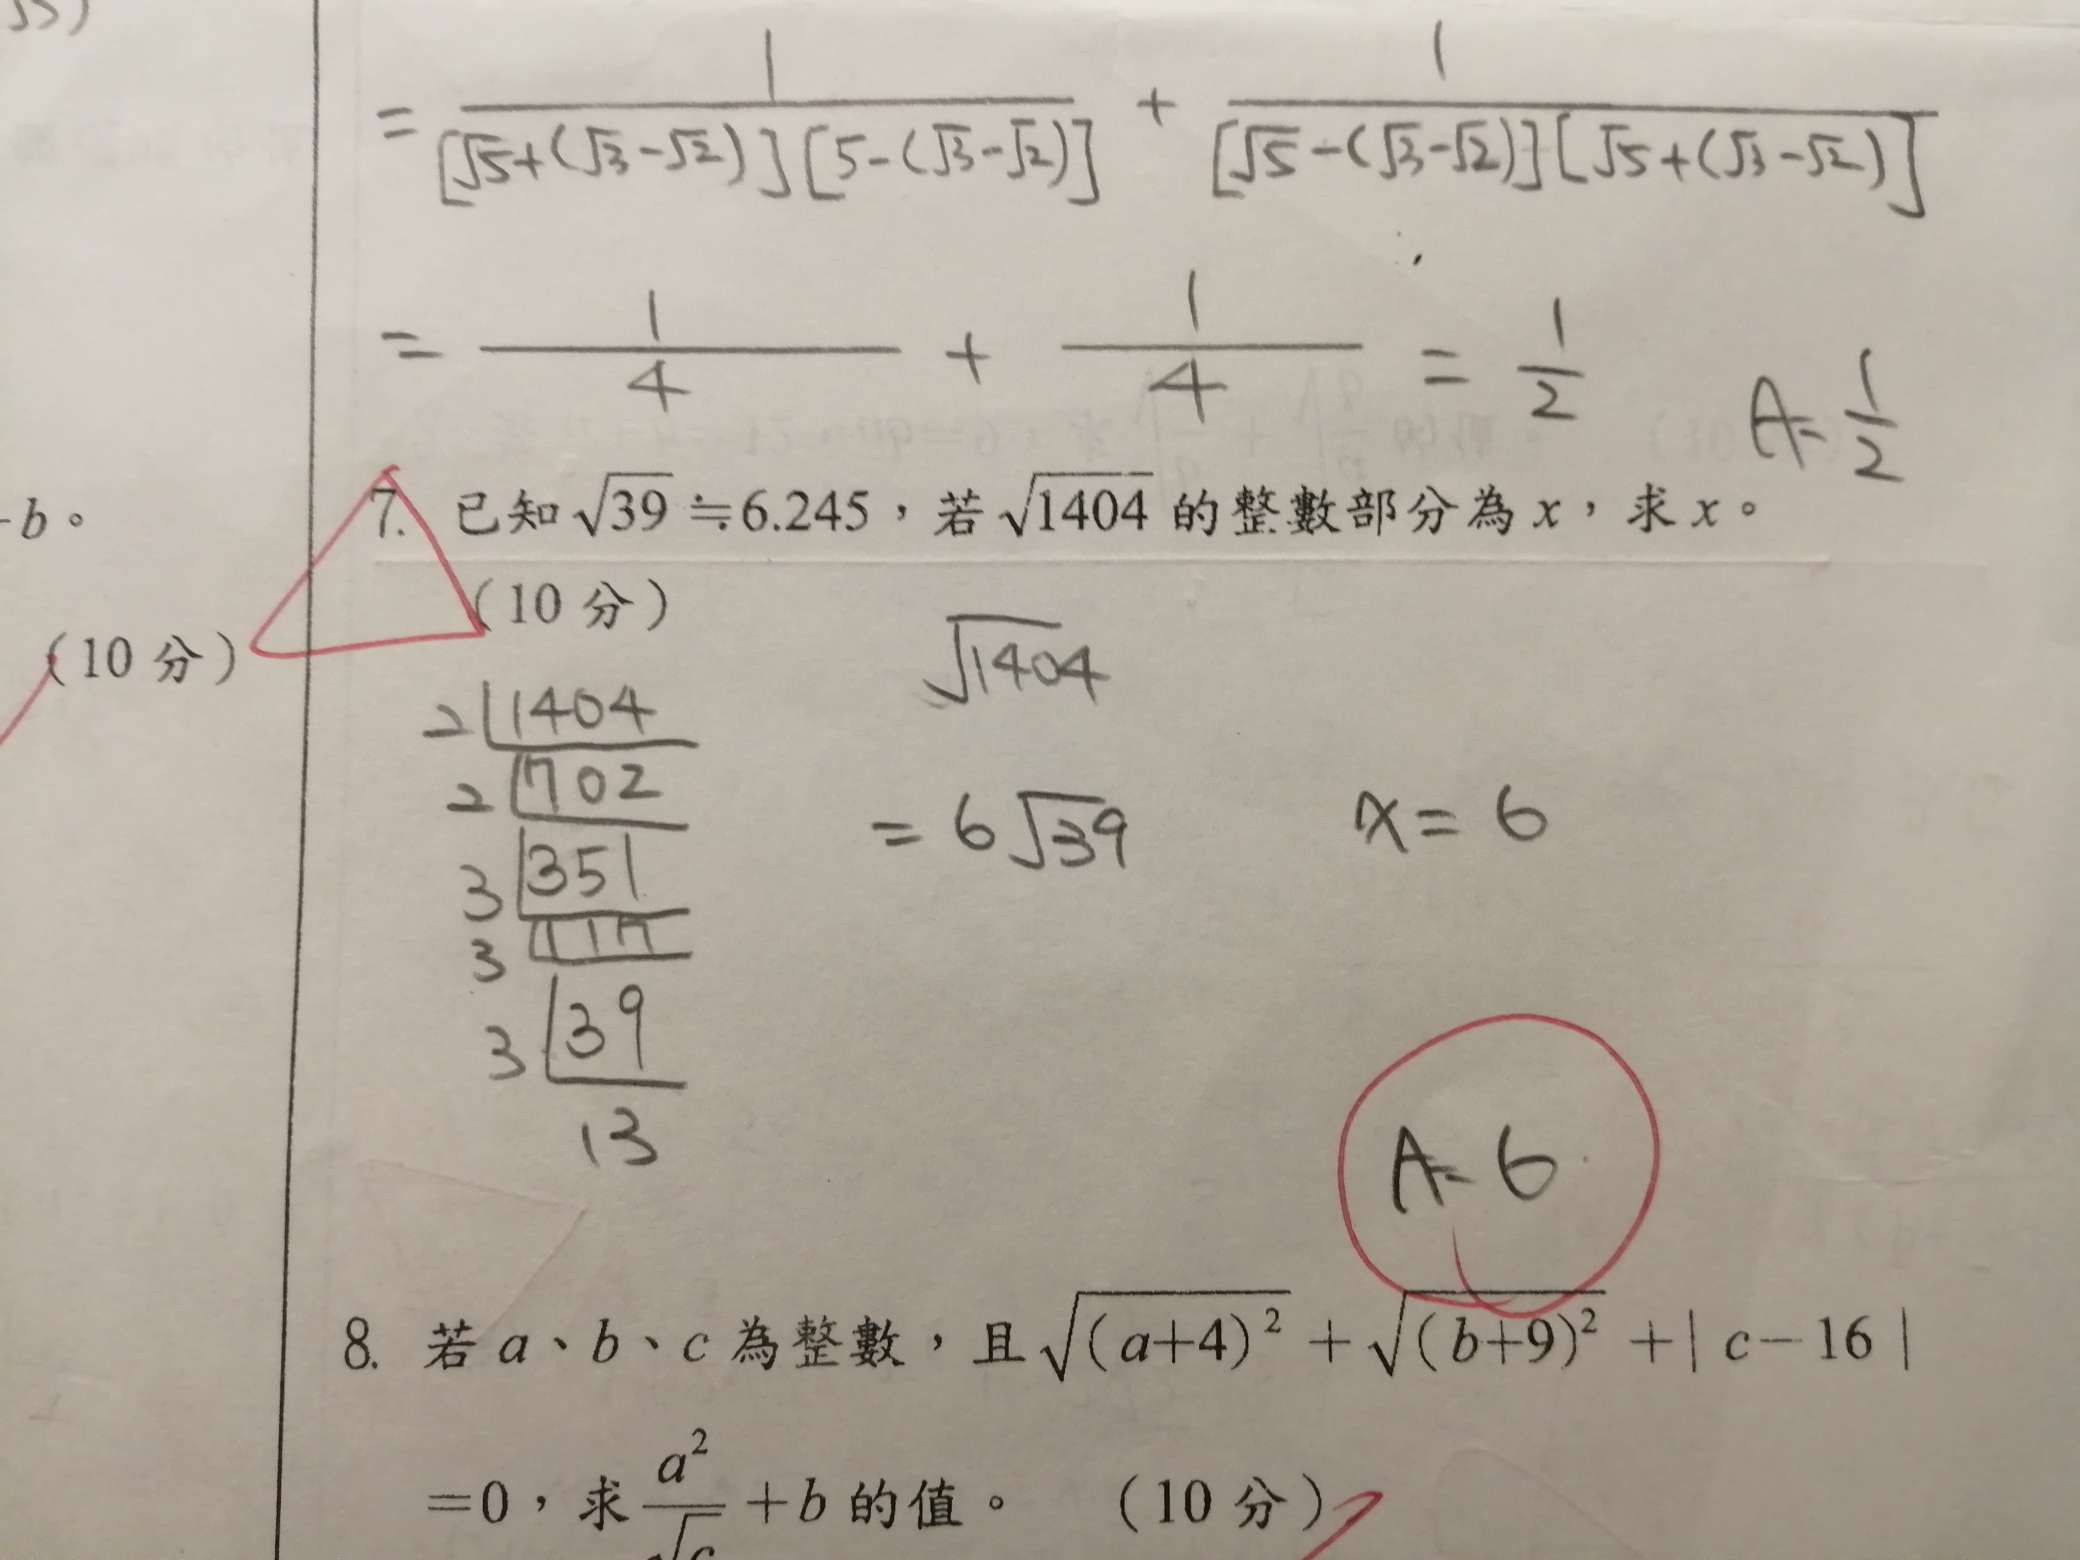 = 1/([√5+(√3-√2)][5-(√3-√2)]) + 1/([√5-(√3-√2)][√5+(√3-√2)])
= 1/4 + 1/4 = 1/2
A= 1/2
-b。
(10 分)
7. 已知 √39 ≒6.245,若 √1404 的整數部分為 x,求 x。
(10 分)
2 1404
2 702
3 351
3 117
3 39
13
√1404
= 6√39
x = 6
A= 6
8. 若 a、b、c 為整數,且 √(a+4)² + √(b+9)² +| c-16 |
=0,求 a²/√c +b 的值。 (10 分)